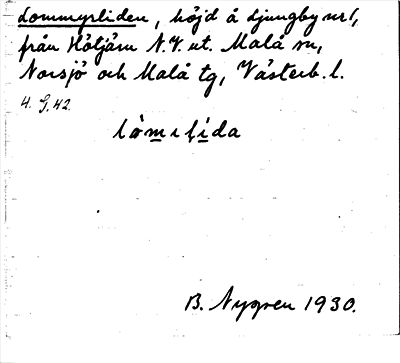 Lommyrliden, höjd å Ljungby url,
från Hötjärn N.V. ut. Malå sn,
Norsjö och Malå tg, Västerb. l.
4. G. 42.
B. Nygren 1930.